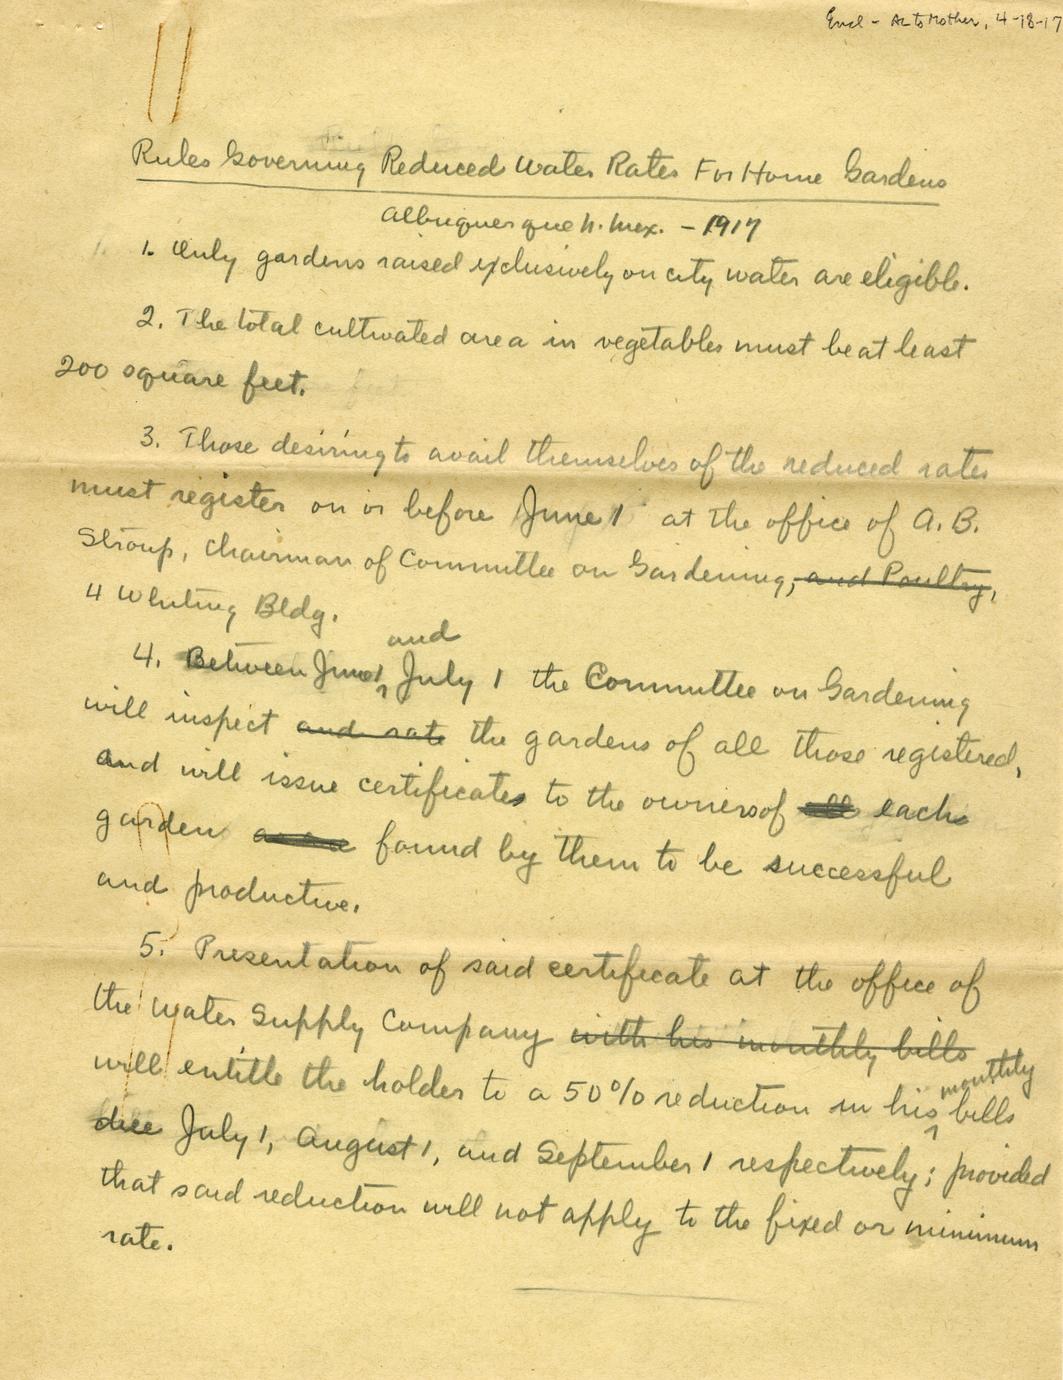 Encl - AL to Mother, 4-18-17
Rules Governing Reduced Water Rates For Home Gardens
Albuquerque N. Mex. - 1917
1. Only gardens raised exclusively on city water are eligible.
2. The total cultivated area in vegetables must be at least
200 square feet.
3. Those desiring to avail themselves of the reduced rates
must register on or before June 1 at the office of A. B.
Stroup, Chairman of Committee on Gardening, and Poultry,
4 Whiting Bldg.
and
4. Between June 1, July 1 the Committee on Gardening
will inspect and rate the gardens of all those registered,
and will issue certificates to the owners of all each
garden found by them to be successful
and productive.
5. Presentation of said certificate at the office of
the Water Supply Company with his monthly bills
monthly
will entitle the holder to a 50% reduction in his bills
due July 1, August 1, and September 1 respectively; provided
that said reduction will not apply to the fixed or minimum
rate.